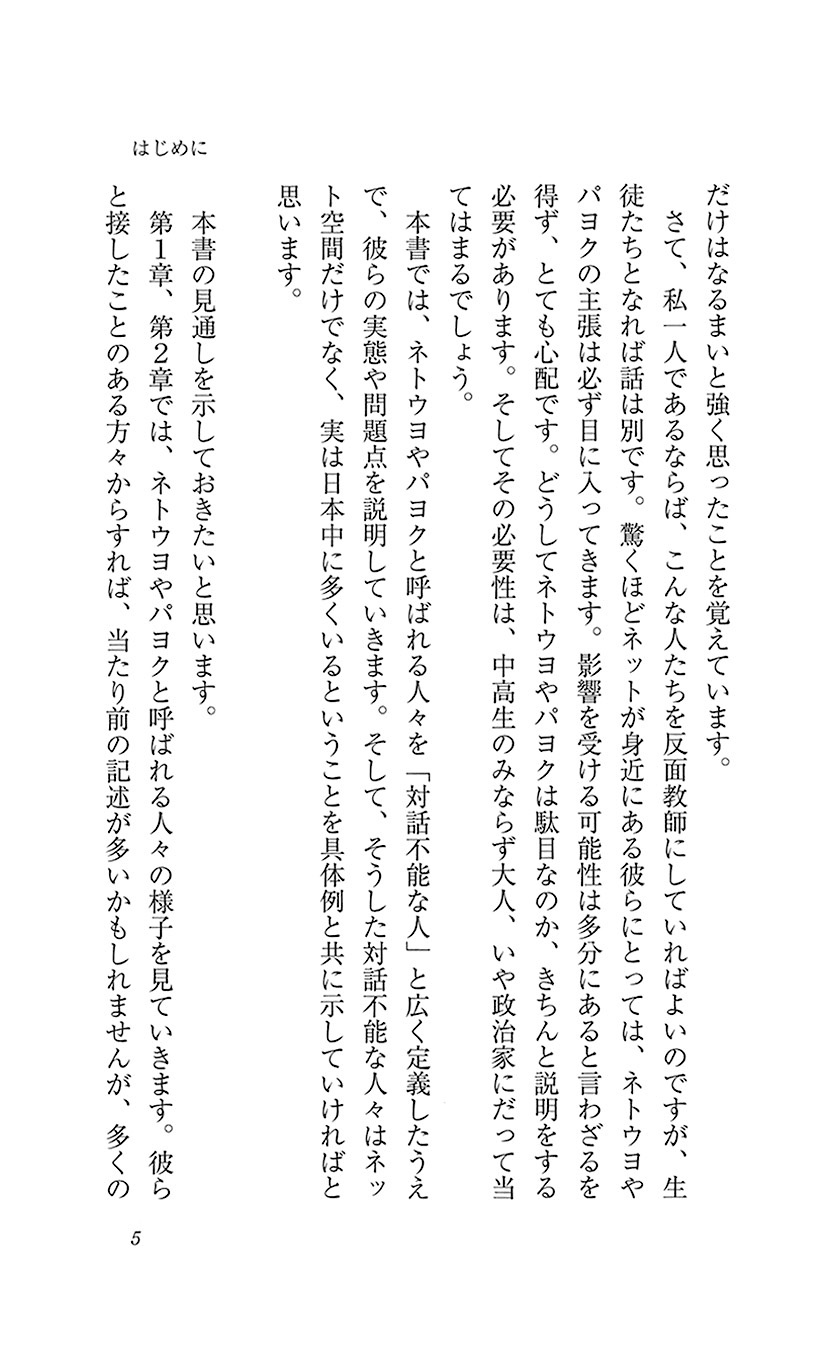 はじめに
だけはなるまいと強く思ったことを覚えています。
さて、私一人であるならば、こんな人たちを反面教師にしていればよいのですが、生
徒たちとなれば話は別です。驚くほどネットが身近にある彼らにとっては、ネトウヨや
パヨクの主張は必ず目に入ってきます。影響を受ける可能性は多分にあると言わざるを
得ず、とても心配です。どうしてネトウヨやパヨクは駄目なのか、きちんと説明をする
必要があります。そしてその必要性は、中高生のみならず大人、いや政治家にだって当
てはまるでしょう。
本書では、ネトウヨやパヨクと呼ばれる人々を「対話不能な人」と広く定義したうえ
で、彼らの実態や問題点を説明していきます。そして、そうした対話不能な人々はネッ
ト空間だけでなく、実は日本中に多くいるということを具体例と共に示していければと
思います。
本書の見通しを示しておきたいと思います。
第1章、第2章では、ネトウヨやパヨクと呼ばれる人々の様子を見ていきます。彼ら
と接したことのある方々からすれば、当たり前の記述が多いかもしれませんが、多くの
5